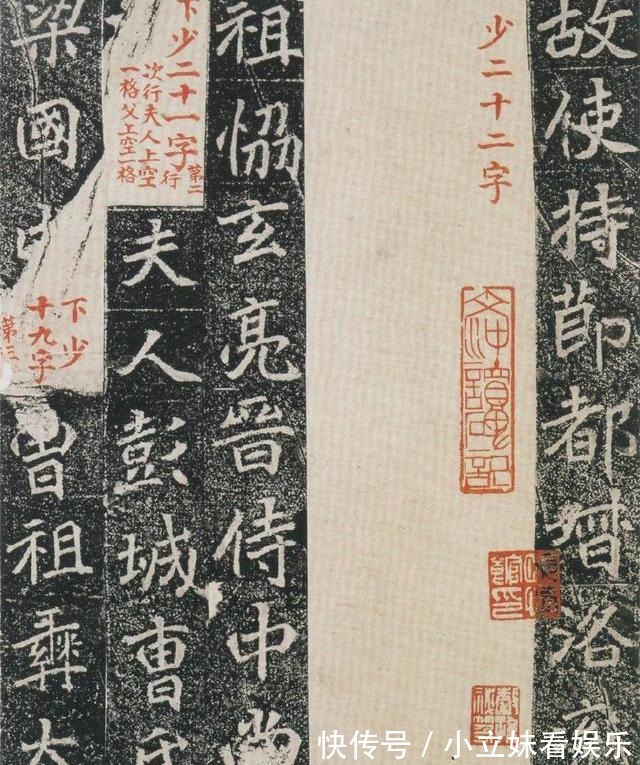 故使持節都督洛
少二十二字
祖恊玄亮晉侍中尚
下少二十一字
第二行
次行夫人上空
一格父上空一格
夫人彭城曹氏
梁國中
下少
十九字
第三
曾祖彝大
快传号 / 小立妹看娱乐